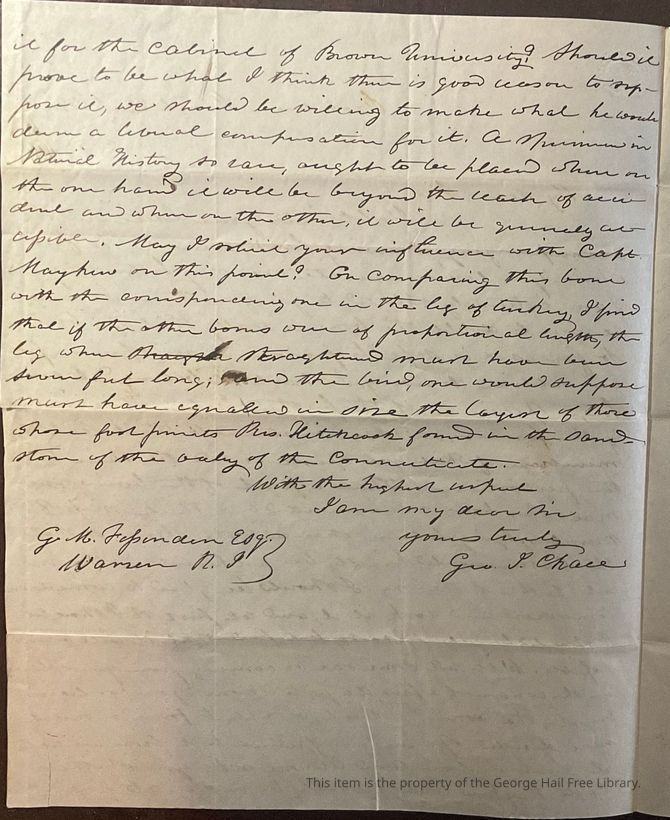 it for the Cabinet of Brown University? Should it
prove to be what I think there is good reason to sup-
pose it, we should be willing to make what he would
deem a liberal compensation for it. A Specimen in
Natural History so rare, ought to be placed where on
the one hand it will be beyond the reach of acci
dent and where on the other, it will be generally ac
cessible. May I solicit your influence with Capt.
Mayhew on this point? On comparing this bone
with the corresponding one in the leg of turkey, I find
that if the other bones were of proportional length, the
leg when straightened must have been
seven feet long; and the bird, one would suppose
must have equalled in size the largest of those
whose foot prints Pres. Hitchcock found in the sand-
stone of the valley of the Connecticut.
With the highest respect
I am my dear Sir
yours truly
Geo. I. Chace
G. M. Fessenden Esq.
Warren R. I
This item is the property of the George Hail Free Library.